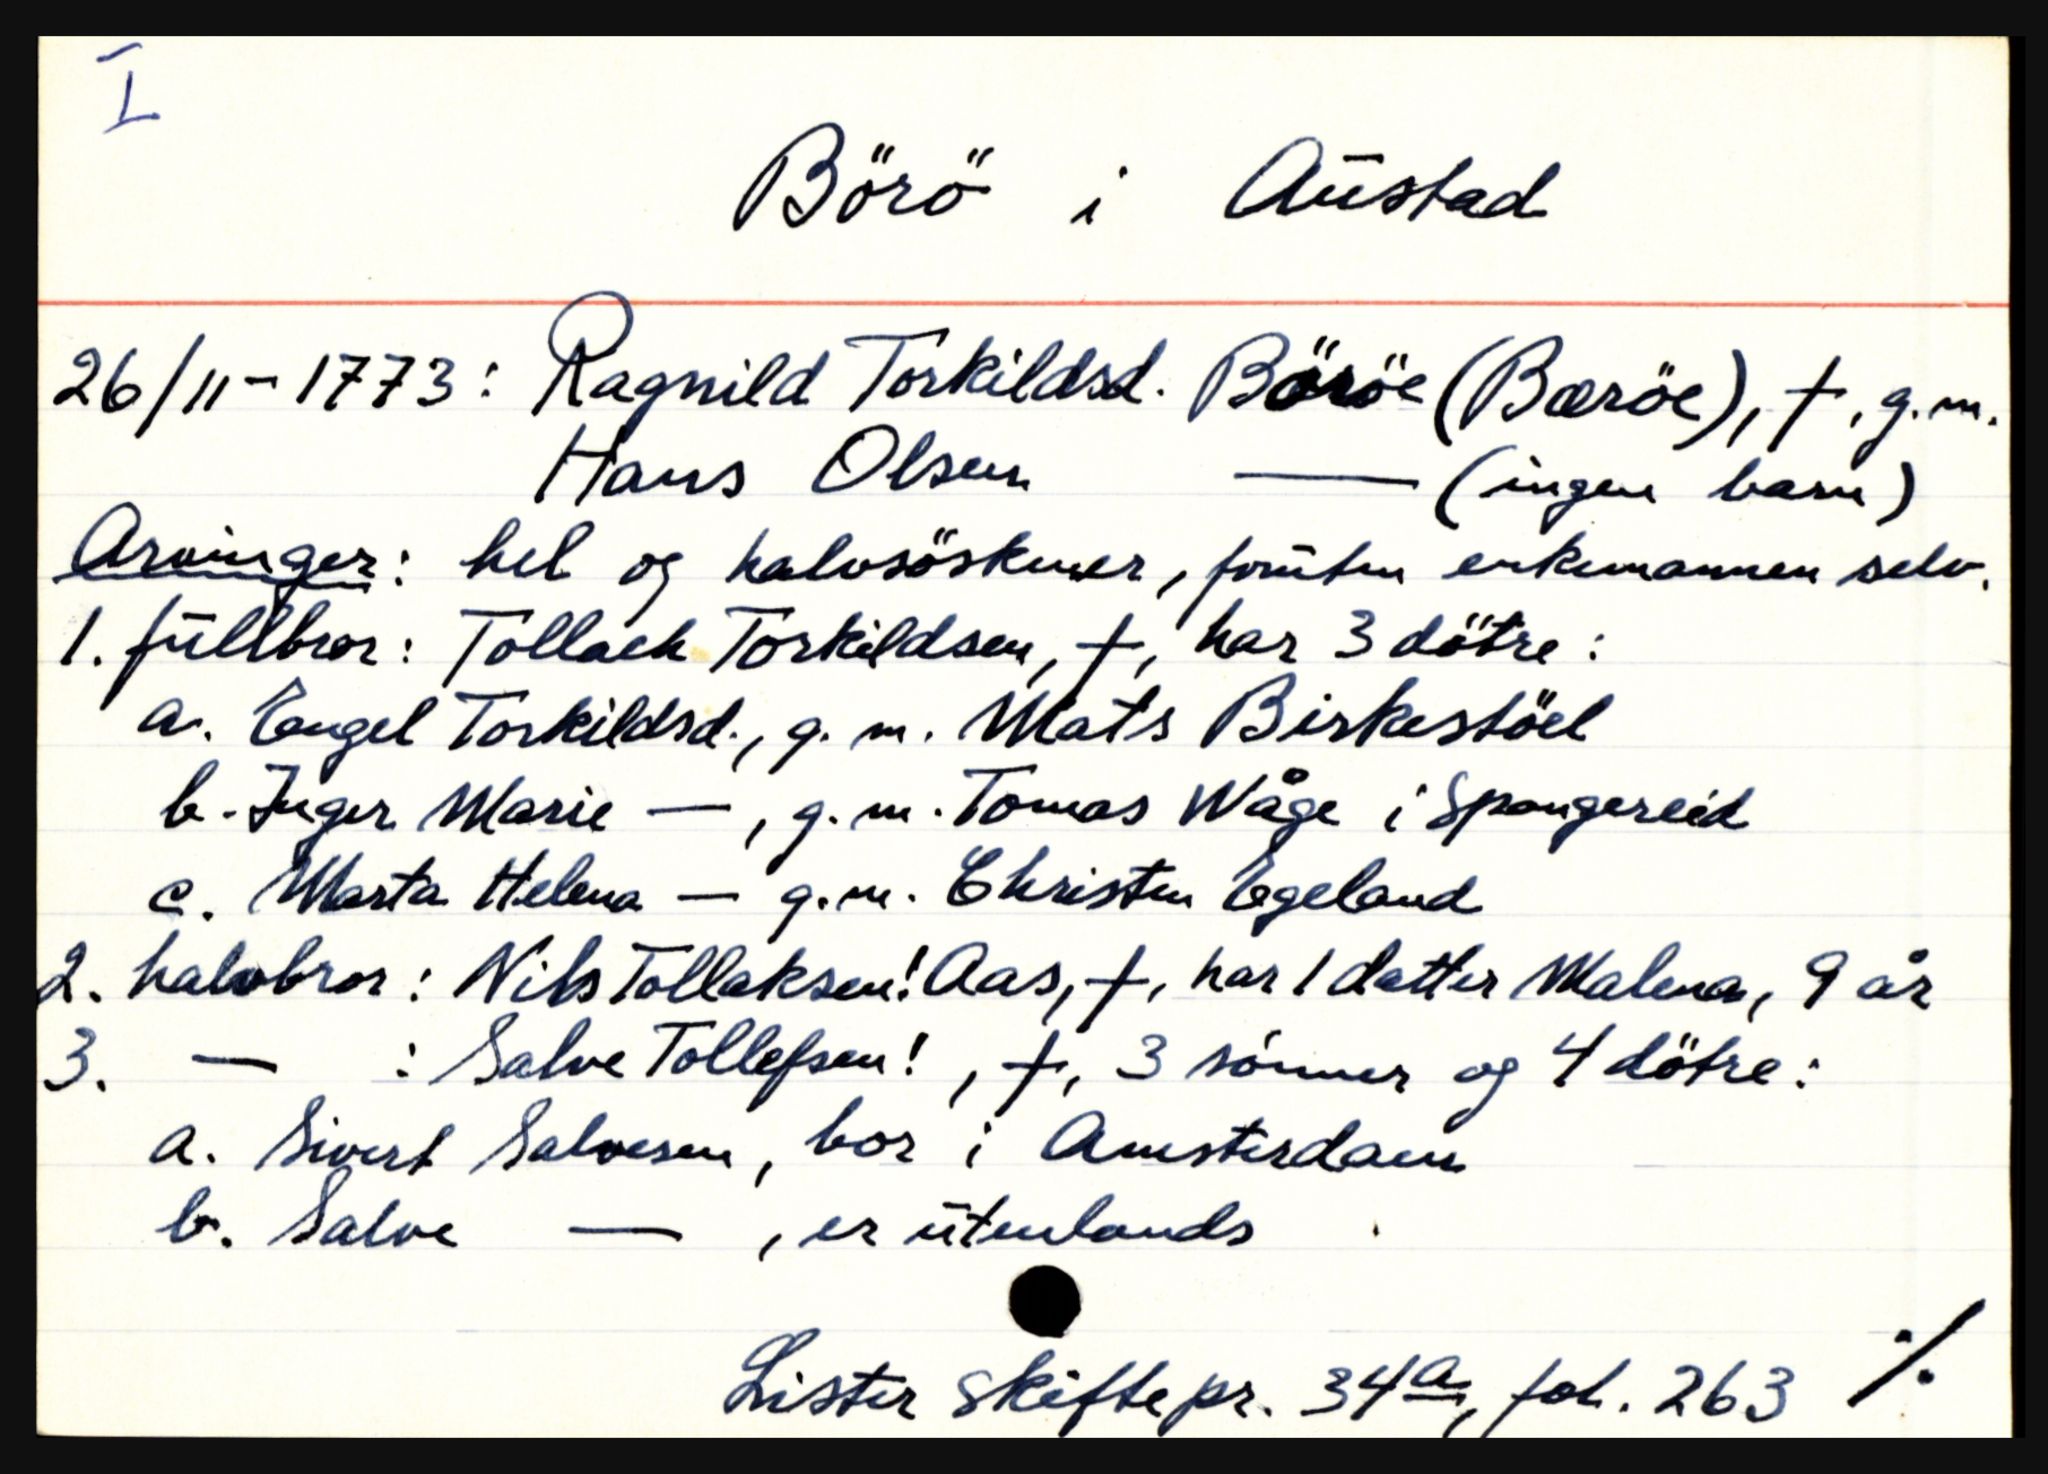 I
Börö i Austad
26/11-1773: Ragnild Torkildsd. Böröe (Bæröe), †, g.m.
Hans Olsen — (ingen barn)
Arvinger: hel og halvsöskner, foruten enkemannen selv.
1. fullbror: Tollack Torkildsen, †, har 3 dötre:
a. Engel Torkildsd., g. m. Mats Birkestöel
b. Inger Marie —, g. m. Tomas Wåge i Spangereid
c. Marta Helena — g. m. Christen Egeland
2. halvbror: Nils Tollaksen! Aas, †, har 1 datter Malena, 9 år
3. — : Salve Tollefsen!, †, 3 sönner og 4 dötre:
a. Sivert Salvesen, bor i Amsterdam
b. Salve —, er utenlands
Lister skiftepr. 34a, fol. 263 ⁒